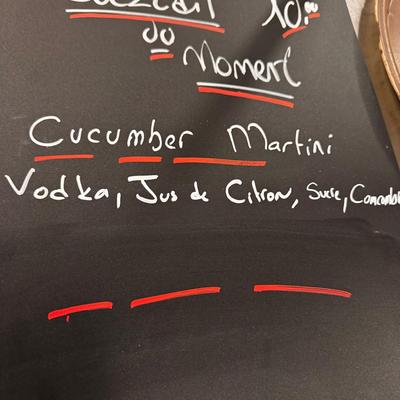 10.00
du
Moment
Cucumber Martini
Vodka, Jus de Citron, Sucre,